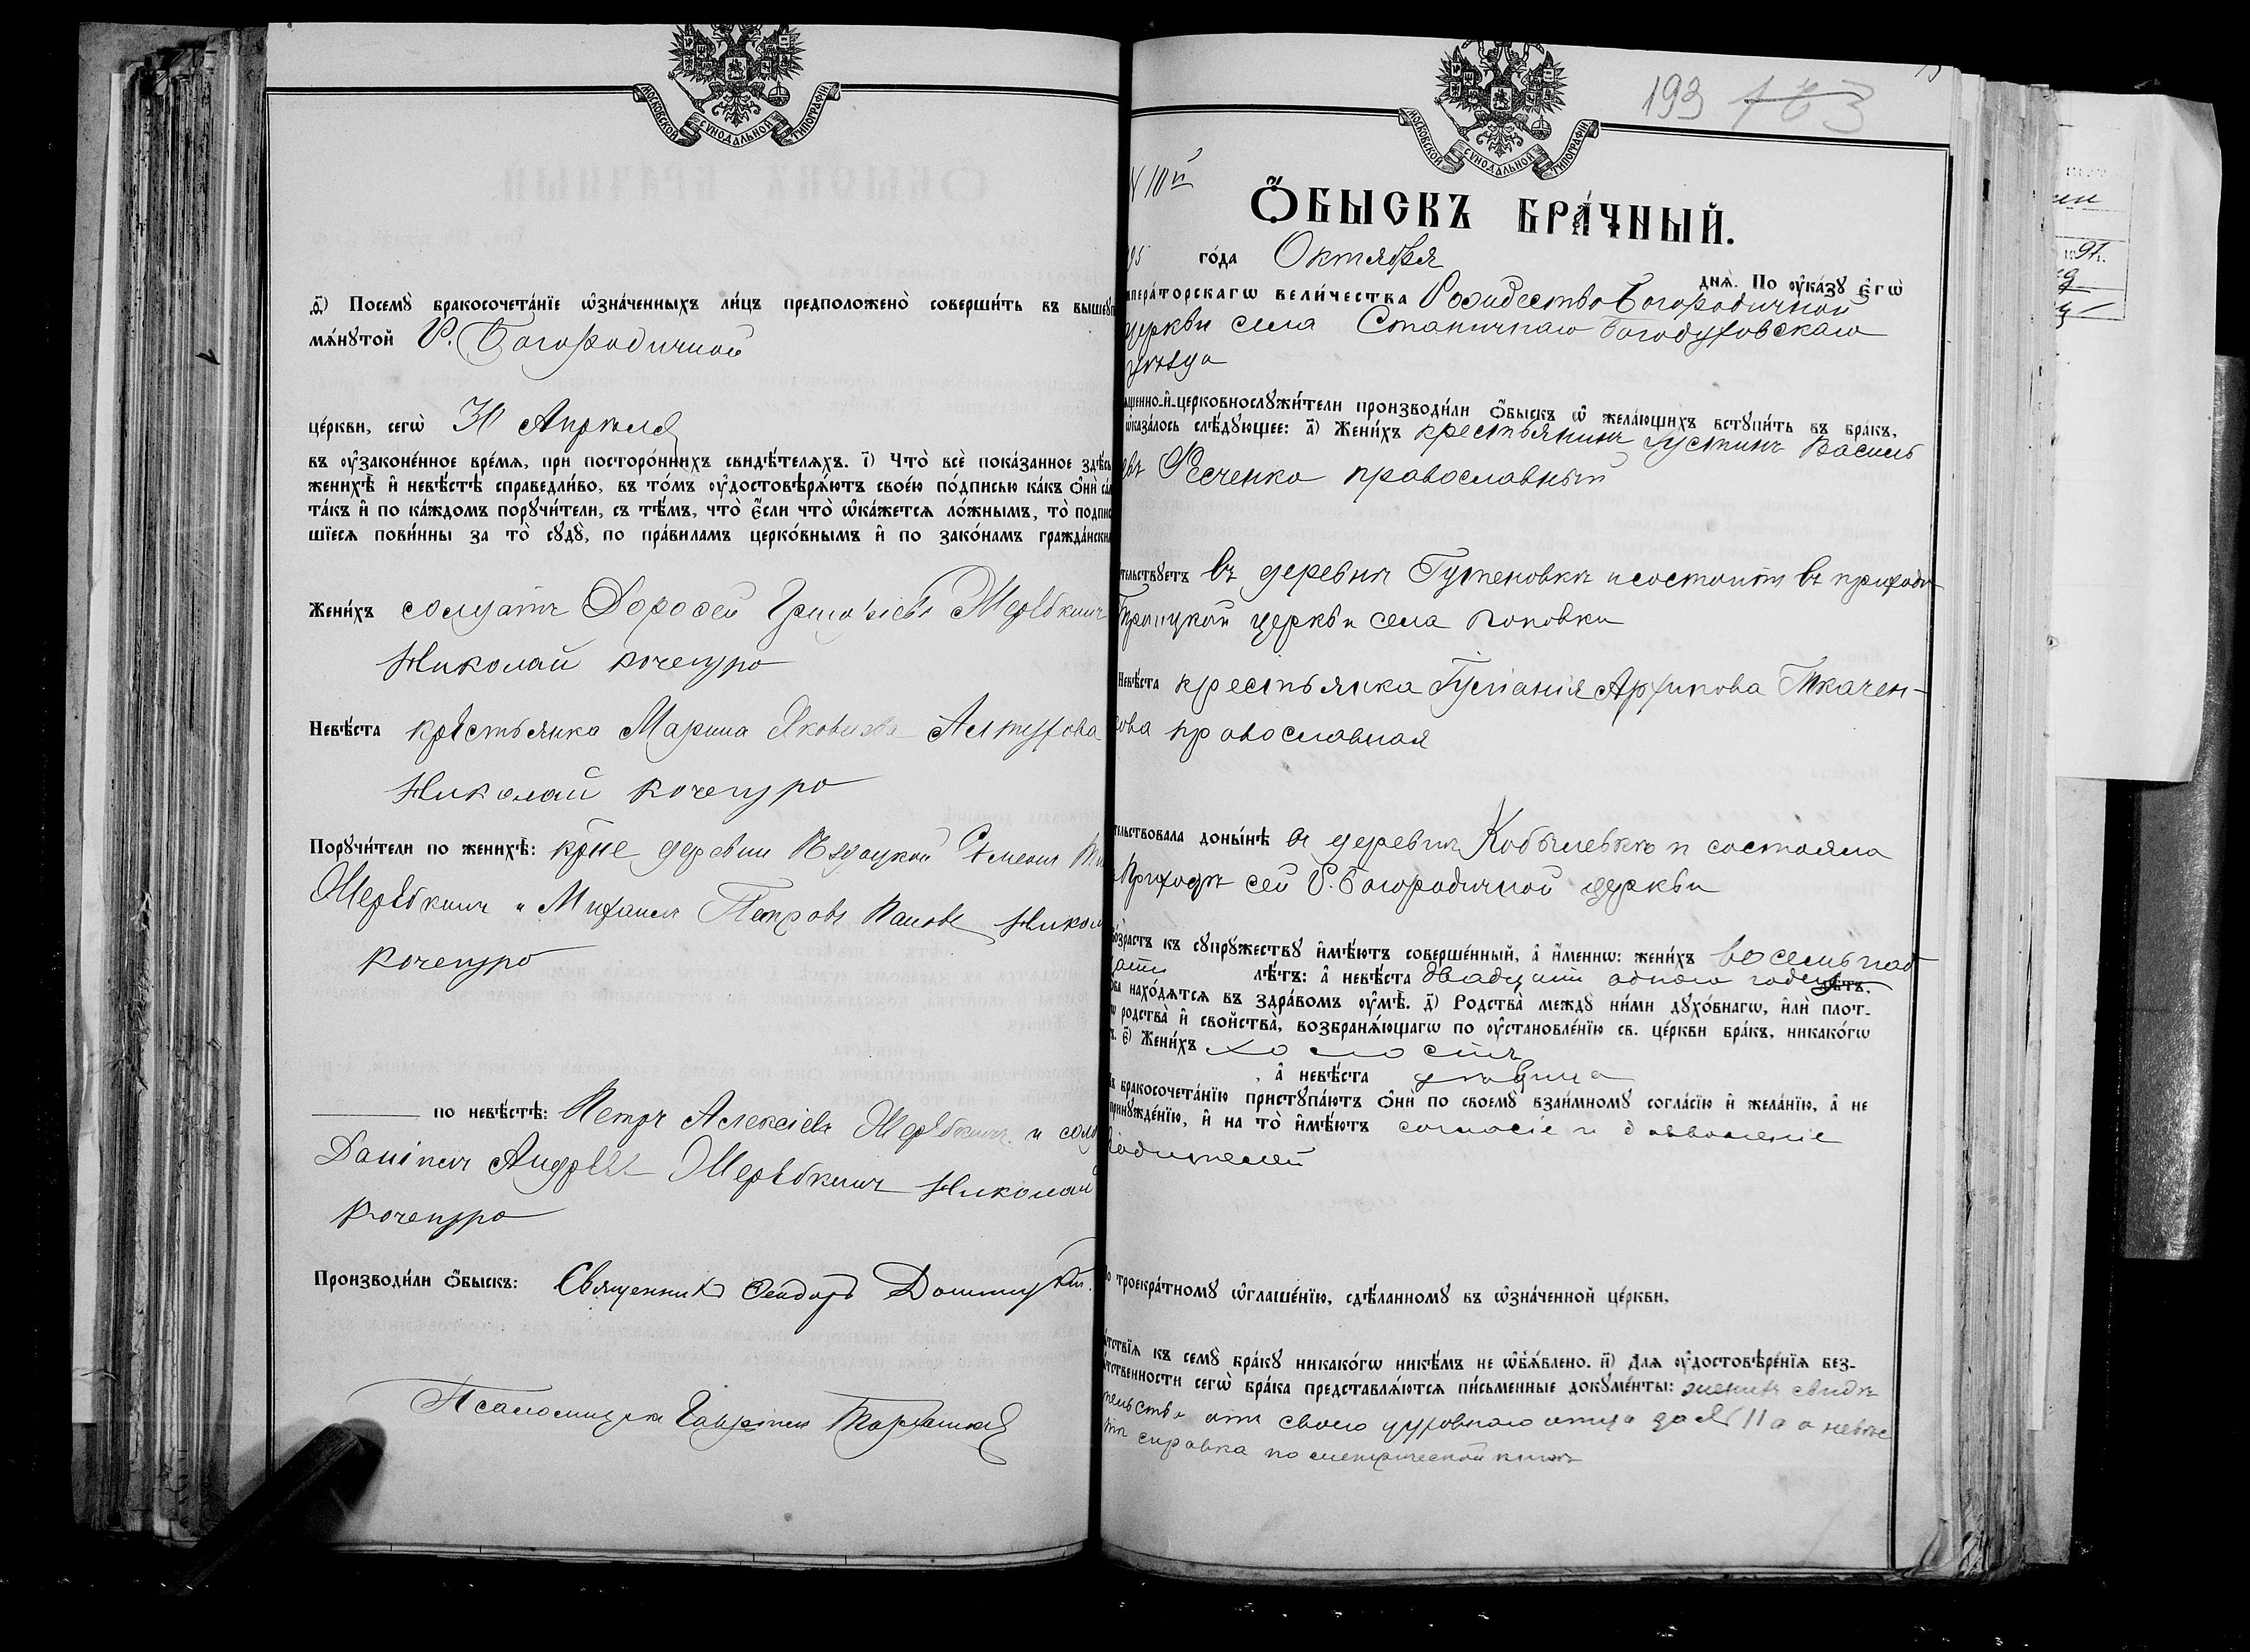 МОСКОВСКОЙ СУНОДАЛЬНОЙ ТИПОГРАФІИ
ѳ҃) Посемꙋ̀ бракосочета́нїе ѡ҆зна́ченныхъ ли́цъ предположено̀ соверши́ть въ вышеꙋп
мѧ́нꙋтой Р. Богородичной
це́ркви, сегѡ̀ 30 Апрѣля
въ ᲂу҆законе́нное вре́мѧ, при посторо́ннихъ свидѣ́телѧхъ. і҃) Что̀ всѐ пока́занное здѣ́сь
женихѣ̀ и҆ невѣ́стѣ справедли́во, въ то́мъ ᲂу҆достовѣрѧ́ютъ свое́ю по́дписью ка́къ ѻ҆нѝ са́
та́къ и҆ по ка́ждомъ порꙋчи́тели, съ тѣ́мъ, что̀ є҆́сли что̀ ѡ҆ка́жетсѧ ло́жнымъ, то̀ подпи
шїесѧ пови́нны за то̀ сꙋдꙋ̀, по пра́виламъ церко́внымъ и҆ по зако́намъ гражда́нски
Жени́хъ солдатъ Доросей Жеребкинъ
Николай Кочепуро
Невѣ́ста крестьянка Марина Яковлева Алтухова
Николай Кочепуро
Порꙋчи́тели по женихѣ̀: кр҃не деревни Семенъ
Жеребкинъ и Михаилъ Петровъ Николай
Кочепуро
по невѣ́стѣ: Петръ Алексіевъ Жеребкинъ и солд
Даніилъ Андреевъ Жеребкинъ Николай
Кочепуро
Производи́ли ѻ҆́быскъ: Священникъ Ѳеодоръ
Псаломщикъ Гавріилъ
193
МОСКОВСКОЙ СУНОДАЛЬНОЙ ТИПОГРАФІИ
N 10й
Ѻ҆́БЫСКЪ БРА́ЧНЫЙ.
95 го́да Октября днѧ̀. По ᲂу҆ка́зꙋ є҆гѡ̀
мпера́торскагѡ вели́чества Рождество Богородичной
церкви села Станичнаго Богодуховскаго
уѣзда
щенно-и҆-церковнослꙋжи́тели производи́ли ѻ҆́быскъ ѡ҆ жела́ющихъ встꙋпи́ть въ бра́къ,
ѡ҆каза́лось слѣ́дꙋющее: а҃) Жени́хъ крестьянинъ Іустинъ Василь
евъ Фесченко православный
тельствꙋетъ въ деревнѣ Густеновкѣ и состоитъ въ приходѣ
Троицкой церкви села Поповки
Невѣ́ста крестьянка Гусланія Архипова Ткачен-
кова православная
тельствовала доны́нѣ въ деревнѣ Кобылевкѣ и состояла
Приходѣ сей Р. Богородичной церкви
во́зрастъ къ сꙋпрꙋ́жествꙋ и҆мѣ́ютъ соверше́нный, а҆ и҆́меннѡ: жени́хъ восемьнад
цати лѣ́тъ: а҆ невѣ́ста двадцати одного года лѣ́тъ.
ѻ́ба нахо́дѧтсѧ въ здра́вомъ ᲂу҆мѣ̀. д҃) Родства̀ междꙋ̀ ни́ми дꙋхо́внагѡ, и҆лѝ плот-
гѡ родства̀ и҆ свойства̀, возбранѧ́ющагѡ по ᲂу҆становле́нїю св. це́ркви бра́къ, никако́гѡ
ъ. є҃) Жени́хъ холостъ
, а҆ невѣ́ста дѣвица
къ бракосочета́нїю пристꙋпа́ютъ ѻ҆нѝ по своемꙋ̀ взаи́мномꙋ согла́сїю и҆ жела́нїю, а҆ не
принꙋжде́нїю, и҆ на то̀ и҆мѣ́ютъ согласіе и дозволеніе
родителей
по троекра́тномꙋ ѡ҆глаше́нїю, сдѣ́ланномꙋ въ ѡ҆зна́ченной це́ркви,
ѧ́тствїѧ къ семꙋ̀ бра́кꙋ никако́гѡ никѣ́мъ не ѡ҆б̾ѧ́влено. и҃) Длѧ ᲂу҆достовѣре́нїѧ без-
ѧ́тственности сегѡ̀ бра́ка представлѧ́ютсѧ пи́сьменные докꙋме́нты: женихъ свидѣ
тельство отъ своего духовнаго отца за № 11 а о невѣс
тѣ справка по метрической книгѣ